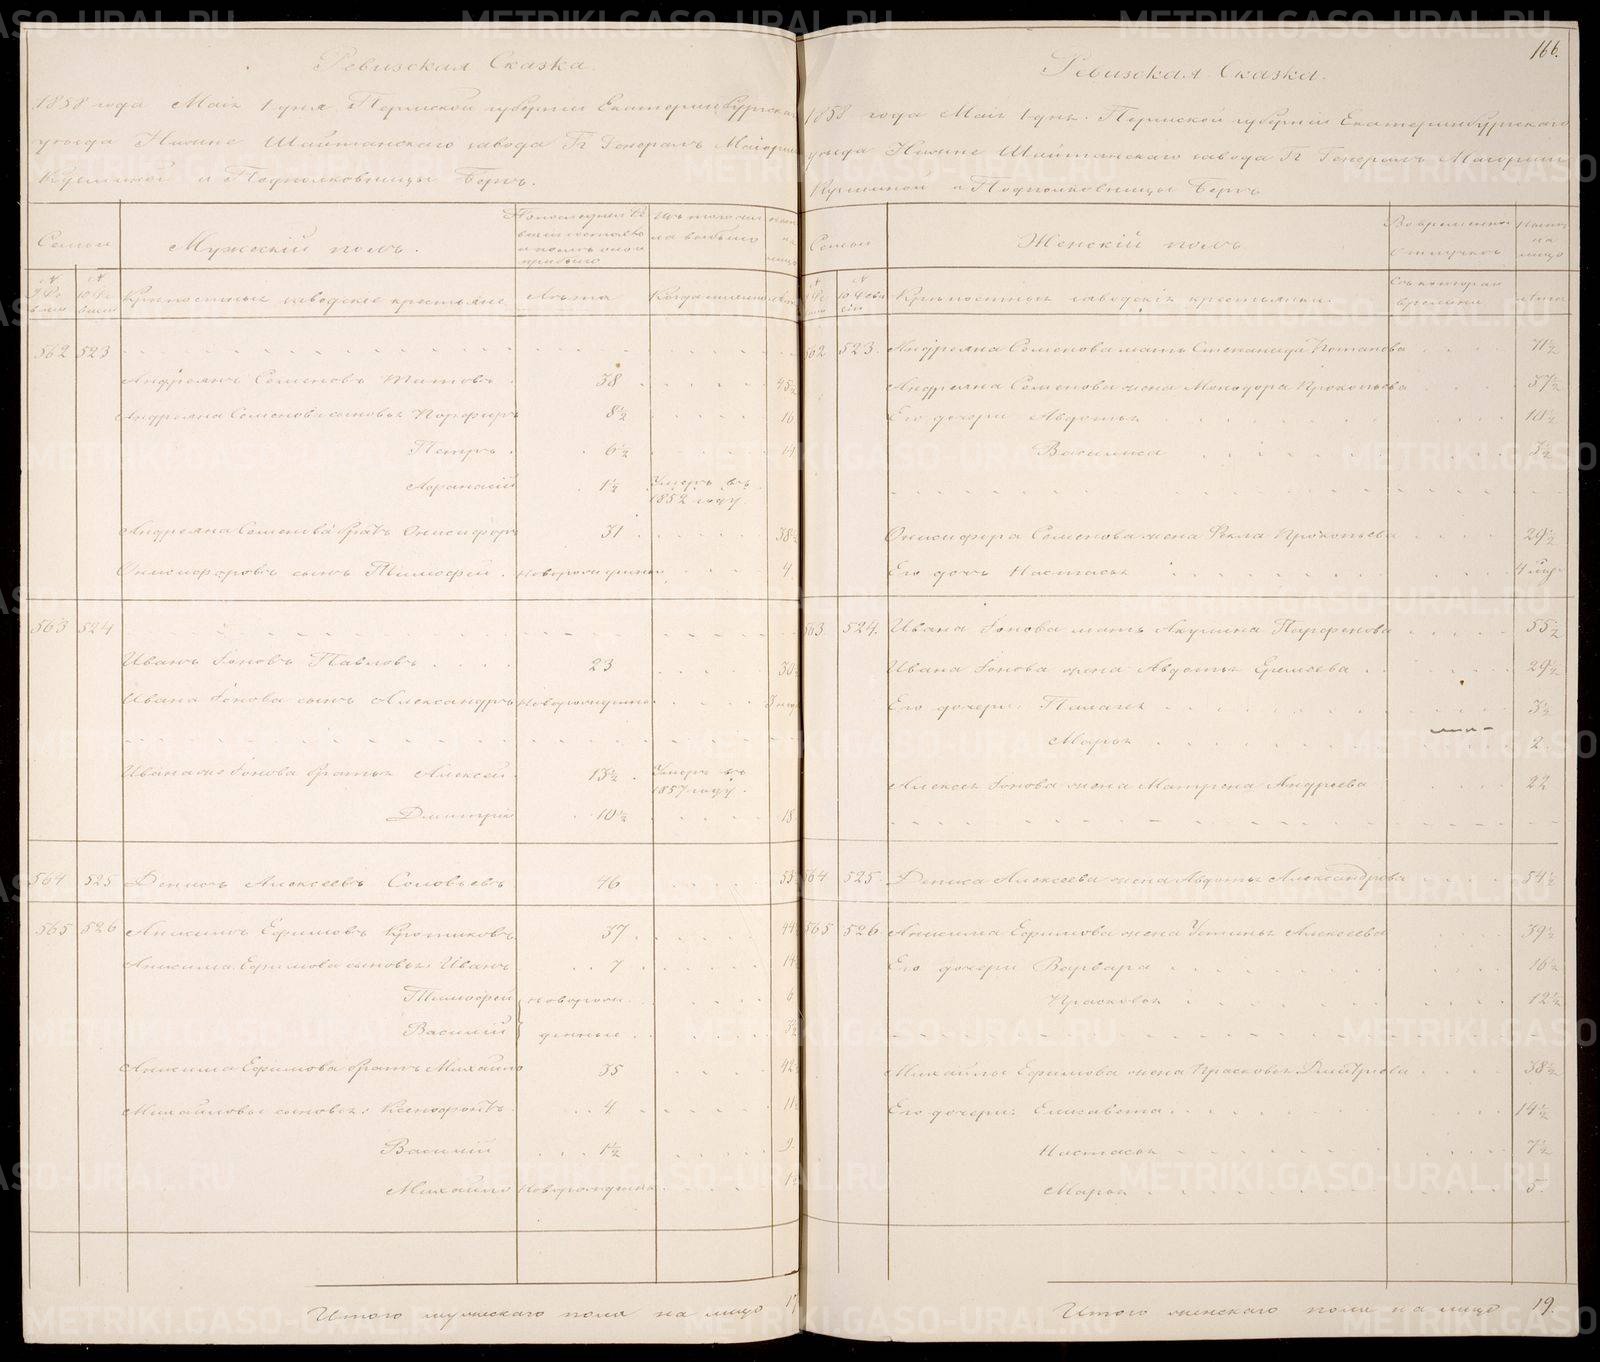 Ревизская Сказка.
1858 года Маія 1 дня Пермской губерніи Екатеринбургскаго
уезда Нижне Шайтанскаго завода Гг Генералъ Маіорши
Кузьминой и Подполковницы Бергъ.
Семьи
Мужескій полъ.
Изъ того числа выбыло
Крѣпостные заводскіе крестьяне
Лѣта
Когда именно
562 523
Андреянъ Семеновъ Титовъ 38 45½
Андреяна Семенова сыновья Порфиръ 8½ 16
Петръ 6½ 14
Афанасій 1½ Умеръ въ 1852 году
Андреяна Семенова братъ Онисифоръ 31 38½
Онисифоровъ сынъ Тимофей новорожденный 4
563 524
Иванъ Іоновъ Павловъ 23 30½
Ивана Іонова сынъ Александръ новорожденный
Ивана же Іонова братья Алексей 13½ Умеръ въ 1857 году
Дмитрій 10½ 18
564 525 Денисъ Алексеевъ Соловьевъ 46 53½
565 526 Анисимъ Ефимовъ Кротиковъ 37 44½
Анисима Ефимова сыновья: Иванъ 7 14½
Тимофей новорож- 6
Василій денные 3½
Анисима Ефимова братъ Михайло 35 42½
Михайловы сыновья: Ксенофонтъ 4 11½
Василій 1½ 9
Михайло новорожденный 1½
Итого мужескаго пола на лицо 17
166.
Ревизская Сказка.
1858 года Маія 1 дня. Пермской губерніи Екатеринбургскаго
уезда Нижне Шайтанскаго завода Гг Генералъ Маіорши
Кузьминой и Подполковницы Бергъ
Семьи
Женскій полъ
Во временной отлучкѣ
Ныне на лицо
Крѣпостныя заводскія крестьянки.
Съ котораго времени
Лѣта
562 523. Андреяна Семенова мать Степанида Потапова 71½
Андреяна Семенова жена Минодора Прокопьева 37½
Его дочери Авдотья 10½
Василиса 3½
Онисифора Семенова жена Фекла Прокопьева 29½
Его дочь Настасья 4 мѣс.
563 524. Ивана Іонова мать Акулина Парфенова 55½
Ивана Іонова жена Авдотья Елисеева 29½
Его дочери: Пилагея 3½
Марья 2
Алексея Іонова жена Матрена Андреева 22
564 525. Дениса Алексеева жена Авдотья Александрова 54½
565 526 Анисима Ефимова жена Устинья Алексеева 39½
Его дочери Варвара 16½
Прасковья 12½
Михайлы Ефимова жена Прасковья Дмитріева 38½
Его дочери: Елисавета 14½
Настасья 7½
Марья 5
Итого женскаго пола на лицо 19.
METRIKI.GASO-URAL.RU